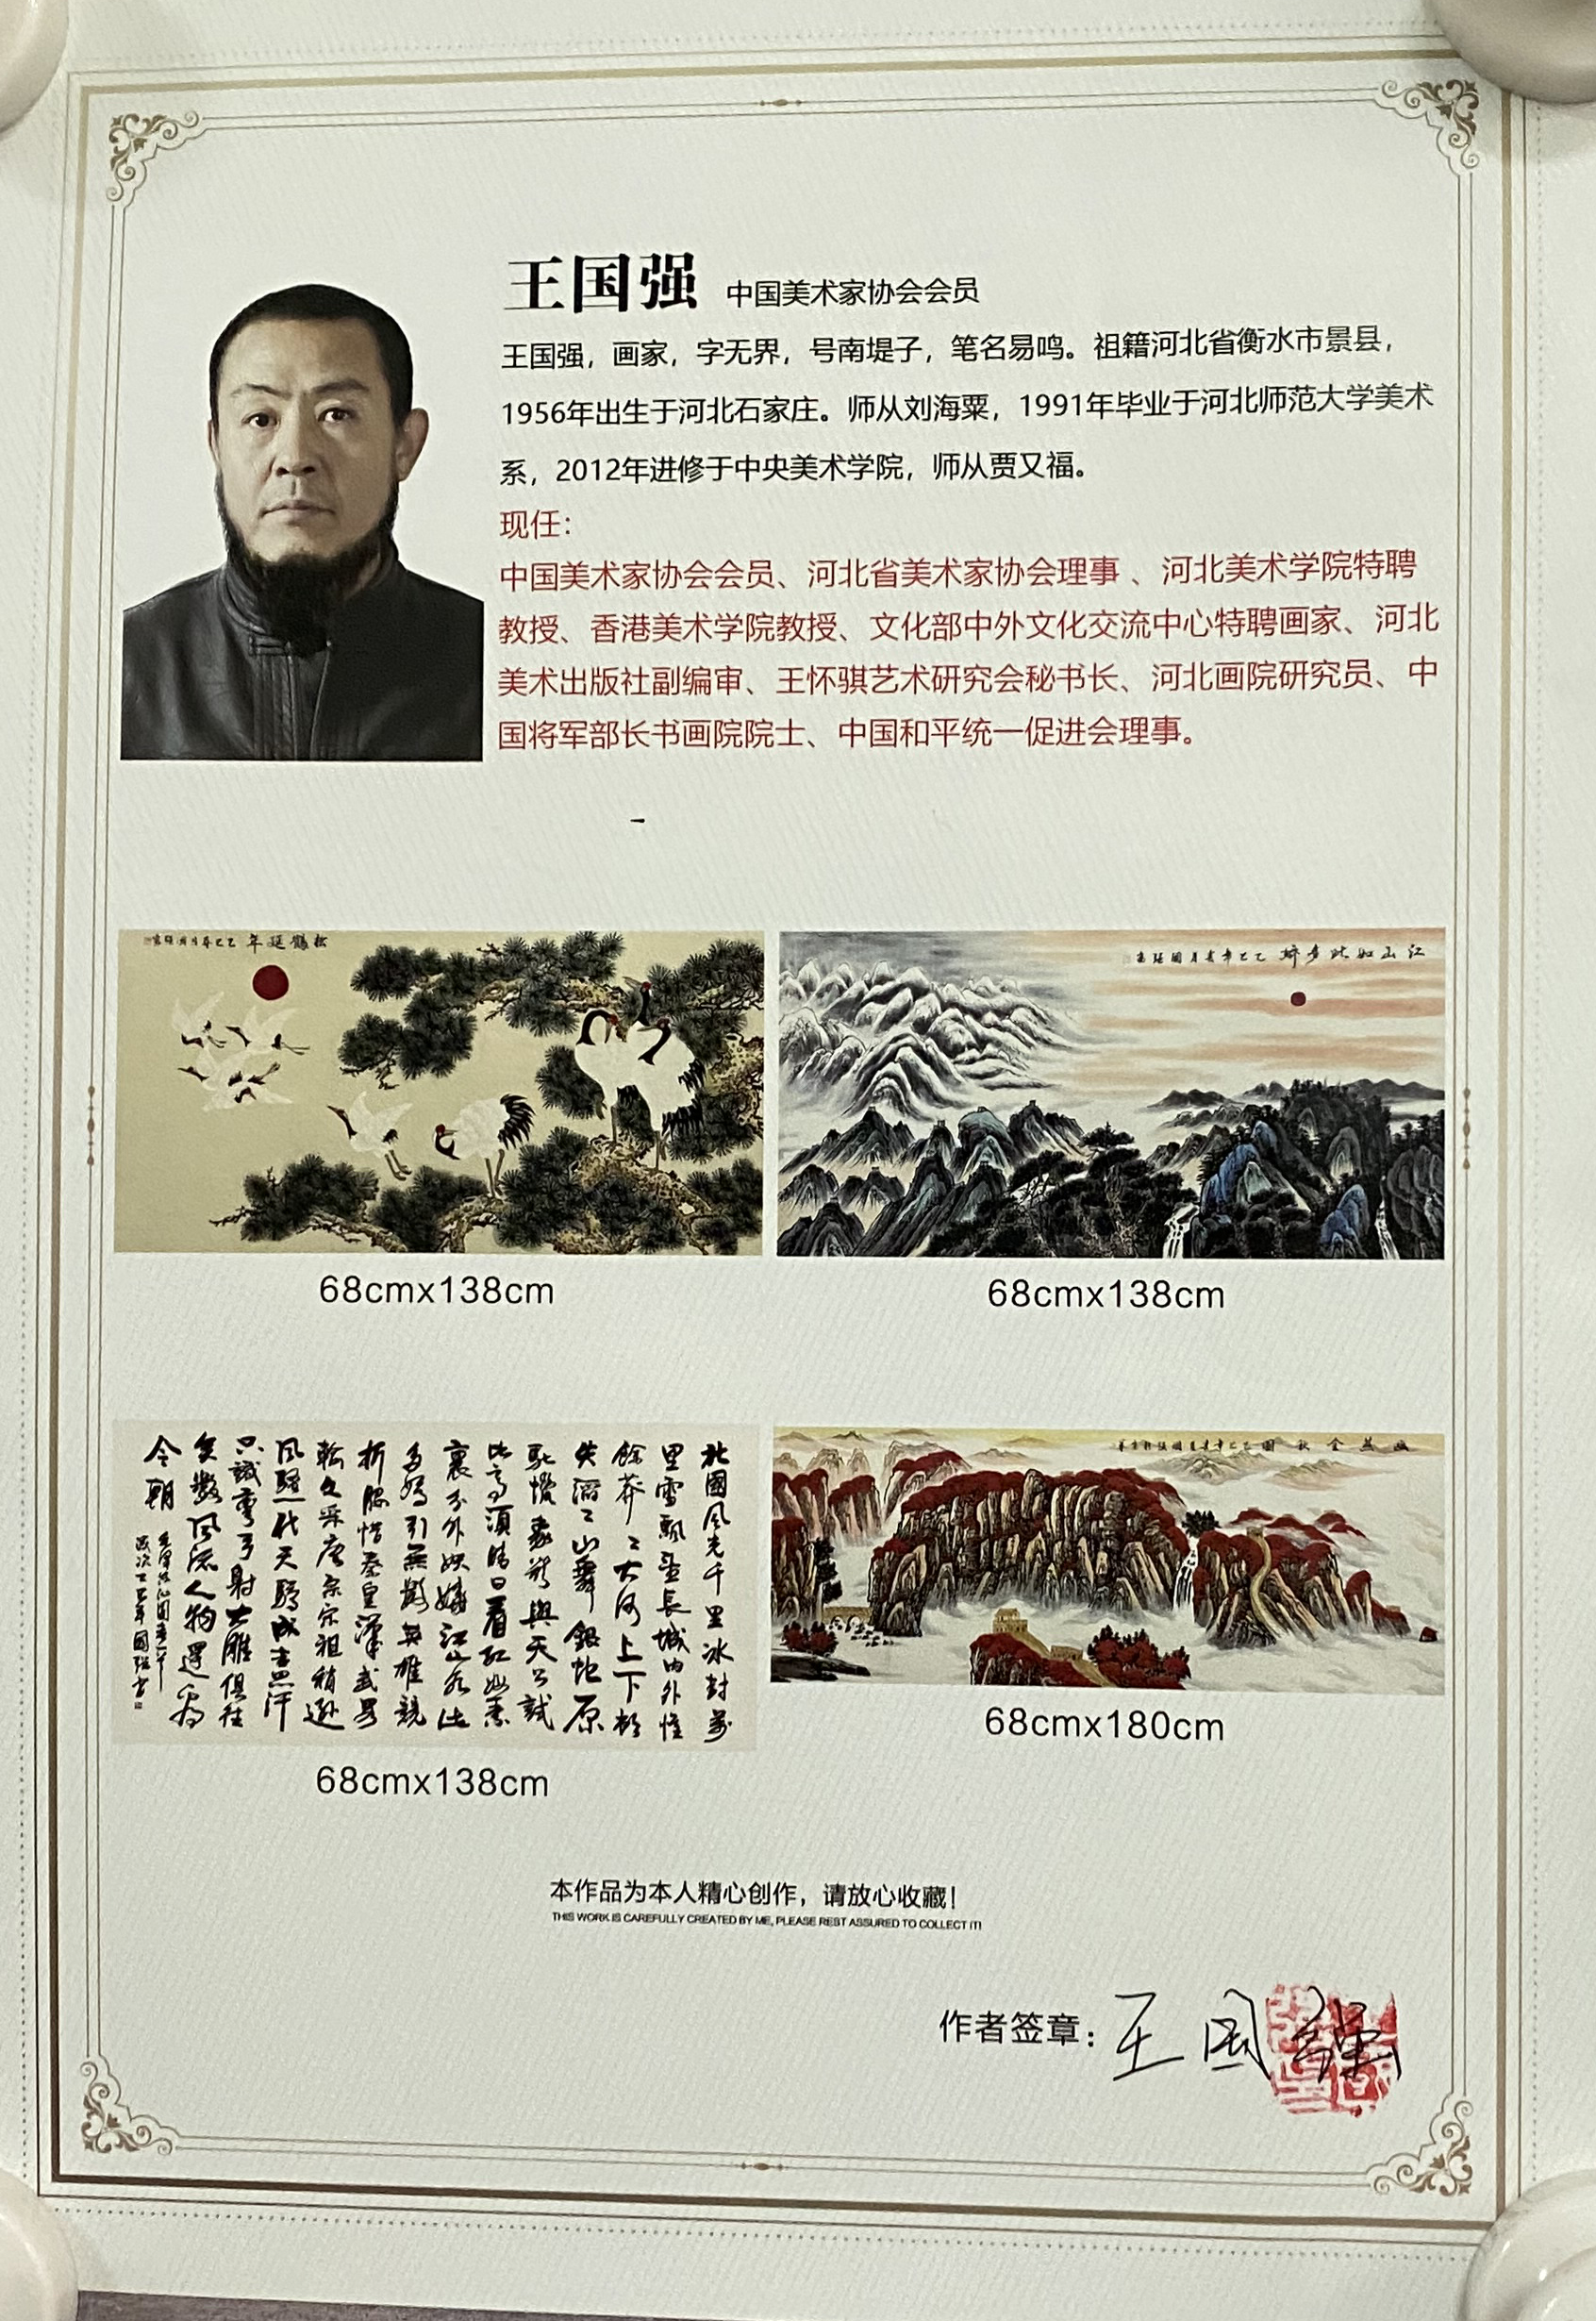 王国强 中国美术家协会会员
王国强，画家，字无界，号南堤子，笔名易鸣。祖籍河北省衡水市景县，
1956年出生于河北石家庄。师从刘海粟，1991年毕业于河北师范大学美术
系，2012年进修于中央美术学院，师从贾又福。
现任：
中国美术家协会会员、河北省美术家协会理事 、河北美术学院特聘
教授、香港美术学院教授、文化部中外文化交流中心特聘画家、河北
美术出版社副编审、王怀骐艺术研究会秘书长、河北画院研究员、中
国将军部长书画院院士、中国和平统一促进会理事。
松鶴延年
江山如此多娇
68cmx138cm
68cmx138cm
北國風光千里冰封萬
里雪飄望長城内外惟
餘莽々大河上下頓
失滔々山舞銀蛇原
馳蠟象欲與天公試
比高須晴日看紅妝素
裹分外妖嬈江山如此
多嬌引無數英雄競
折腰惜秦皇漢武略
輸文采唐宗宋祖稍遜
風騷一代天驕成吉思汗
只識彎弓射大雕俱往
矣數風流人物還看
今朝
幽燕金秋圖
68cmx180cm
68cmx138cm
本作品为本人精心创作，请放心收藏！
THIS WORK IS CAREFULLY CREATED BY ME, PLEASE REST ASSURED TO COLLECT IT!
作者签章：王国强